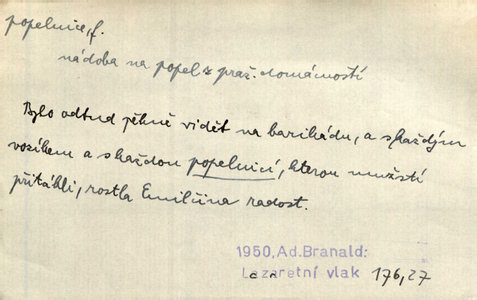 popelnice, f.
nádoba na popel z praž. domácností
Bylo odtud pěkně vidět na barikádu, a s každým
vozíkem a s každou popelnicí, kterou mužstí
přitáhli, rostla Emilčina radost.
1950, Ad. Branald:
Lazaretní vlak 176,27